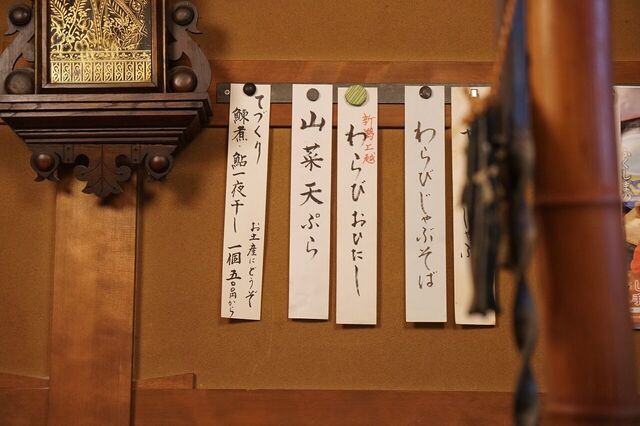 わらびじゃぶそば
新潟上越
わらびおひたし
山菜天ぷら
てづくり
鰊煮・鮎一夜干し
お土産にどうぞ
一個五〇〇円から